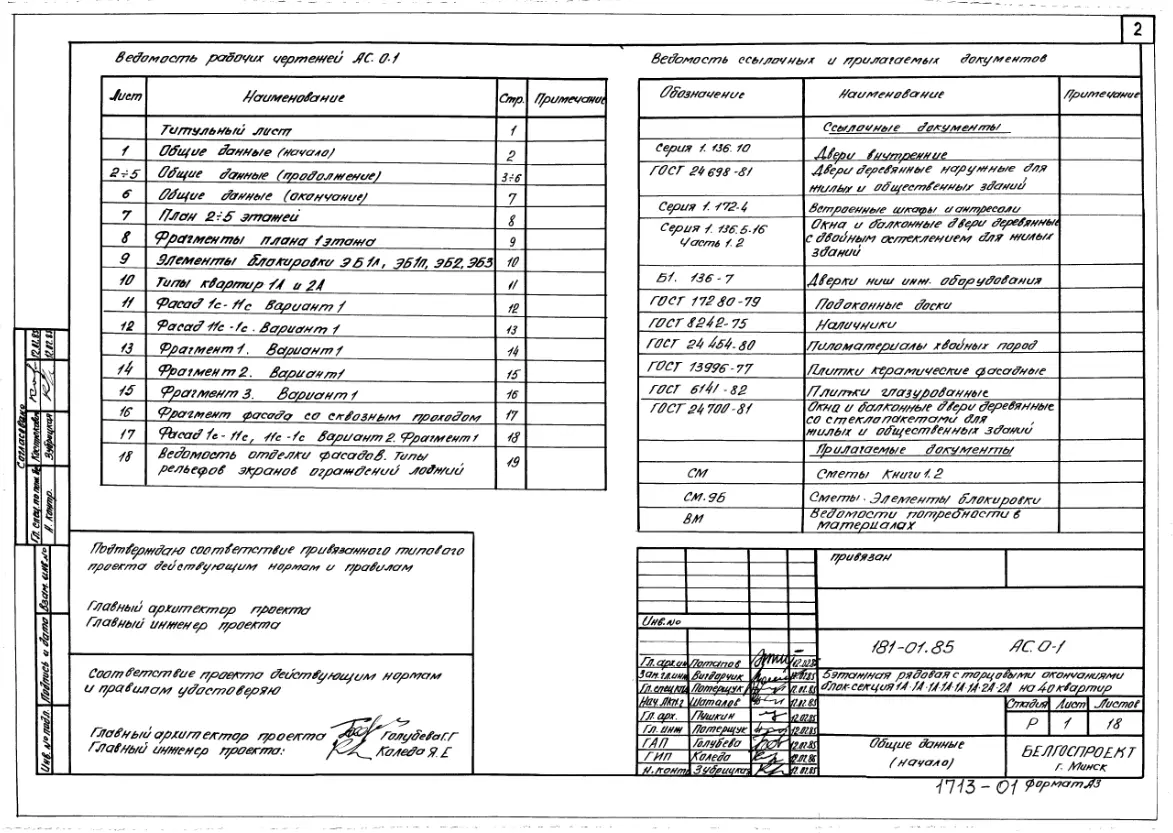 2
Ведомость рабочих чертежей АС. 0-1
Лист Наименование Стр. Примечание
Титульный лист 1
1 Общие данные (начало) 2
2÷5 Общие данные (продолжение) 3÷6
6 Общие данные (окончание) 7
7 План 2÷5 этажей 8
8 Фрагменты плана 1 этажа 9
9 Элементы блокировки ЭБ1л, ЭБ1п, ЭБ2, ЭБ3 10
10 Типы квартир 1А и 2А 11
11 Фасад 1с-11с Вариант 1 12
12 Фасад 11с-1с. Вариант 1 13
13 Фрагмент 1. Вариант 1 14
14 Фрагмент 2. Вариант 1 15
15 Фрагмент 3. Вариант 1 16
16 Фрагмент фасада со сквозным проходом 17
17 Фасад 1с-11с, 11с-1с Вариант 2. Фрагмент 1 18
18 Ведомость отделки фасадов. Типы
рельефов экранов ограждений лоджий 19
Ведомость ссылочных и прилагаемых документов
Обозначение Наименование Примечание
Ссылочные документы
Серия 1.136.10 Двери внутренние
ГОСТ 24698-81 Двери деревянные наружные для
жилых и общественных зданий
Серия 1.172-4 Встроенные шкафы и антресоли
Серия 1.136.5-16 Окна и балконные двери деревянные
Часть 1.2 с двойным остеклением для жилых
зданий
Б1. 136-7 Дверки ниш инж. оборудования
ГОСТ 17280-79 Подоконные доски
ГОСТ 8242-75 Наличники
ГОСТ 24454.80 Пиломатериалы хвойных пород
ГОСТ 13996-77 Плитки керамические фасадные
ГОСТ 6141-82 Плитки глазурованные
ГОСТ 24700-81 Окна и балконные двери деревянные
со стеклопакетами для
жилых и общественных зданий
Прилагаемые документы
СМ Сметы Книги 1.2
СМ.ЭБ Сметы. Элементы блокировки
ВМ Ведомости потребности в
материалах
Подтверждаю соответствие привязанного типового
проекта действующим нормам и правилам
Главный архитектор проекта
Главный инженер проекта
Соответствие проекта действующим нормам
и правилам удостоверяю
Главный архитектор проекта Голубева Г.Г
Главный инженер проекта: Коледа Я.Е
Согласовано
Гл. спец. по пож.
Н. контр. Зубрицкая 12.01.85
Взам. инв.№
Подпись и дата
Инв. № подл.
привязан
Инв.№
181-01.85 АС.0-1
Гл. архи Потапов
Зам.гл.инж Вигдорчик
Гл.спец Потерщук 12.01.85
Нач.АКМ-2 Шаталов 12.01.85
Гл. арх. Пушкин 12.02.85
Гл. инж Потерщук 12.02.85
ГАП Голубева 12.01.85
ГИП Коледа 12.01.86
Н.контр Зубрицкая 12.01.85
5этажная рядовая с торцовыми окончаниями
блок-секция 1А-1А-1А-1А-1А-1А-2А-2А на 40 квартир
Стадия Лист Листов
Р 1 18
Общие данные
(начало)
БЕЛГОСПРОЕКТ
г. Минск
1713-01 Формат А3